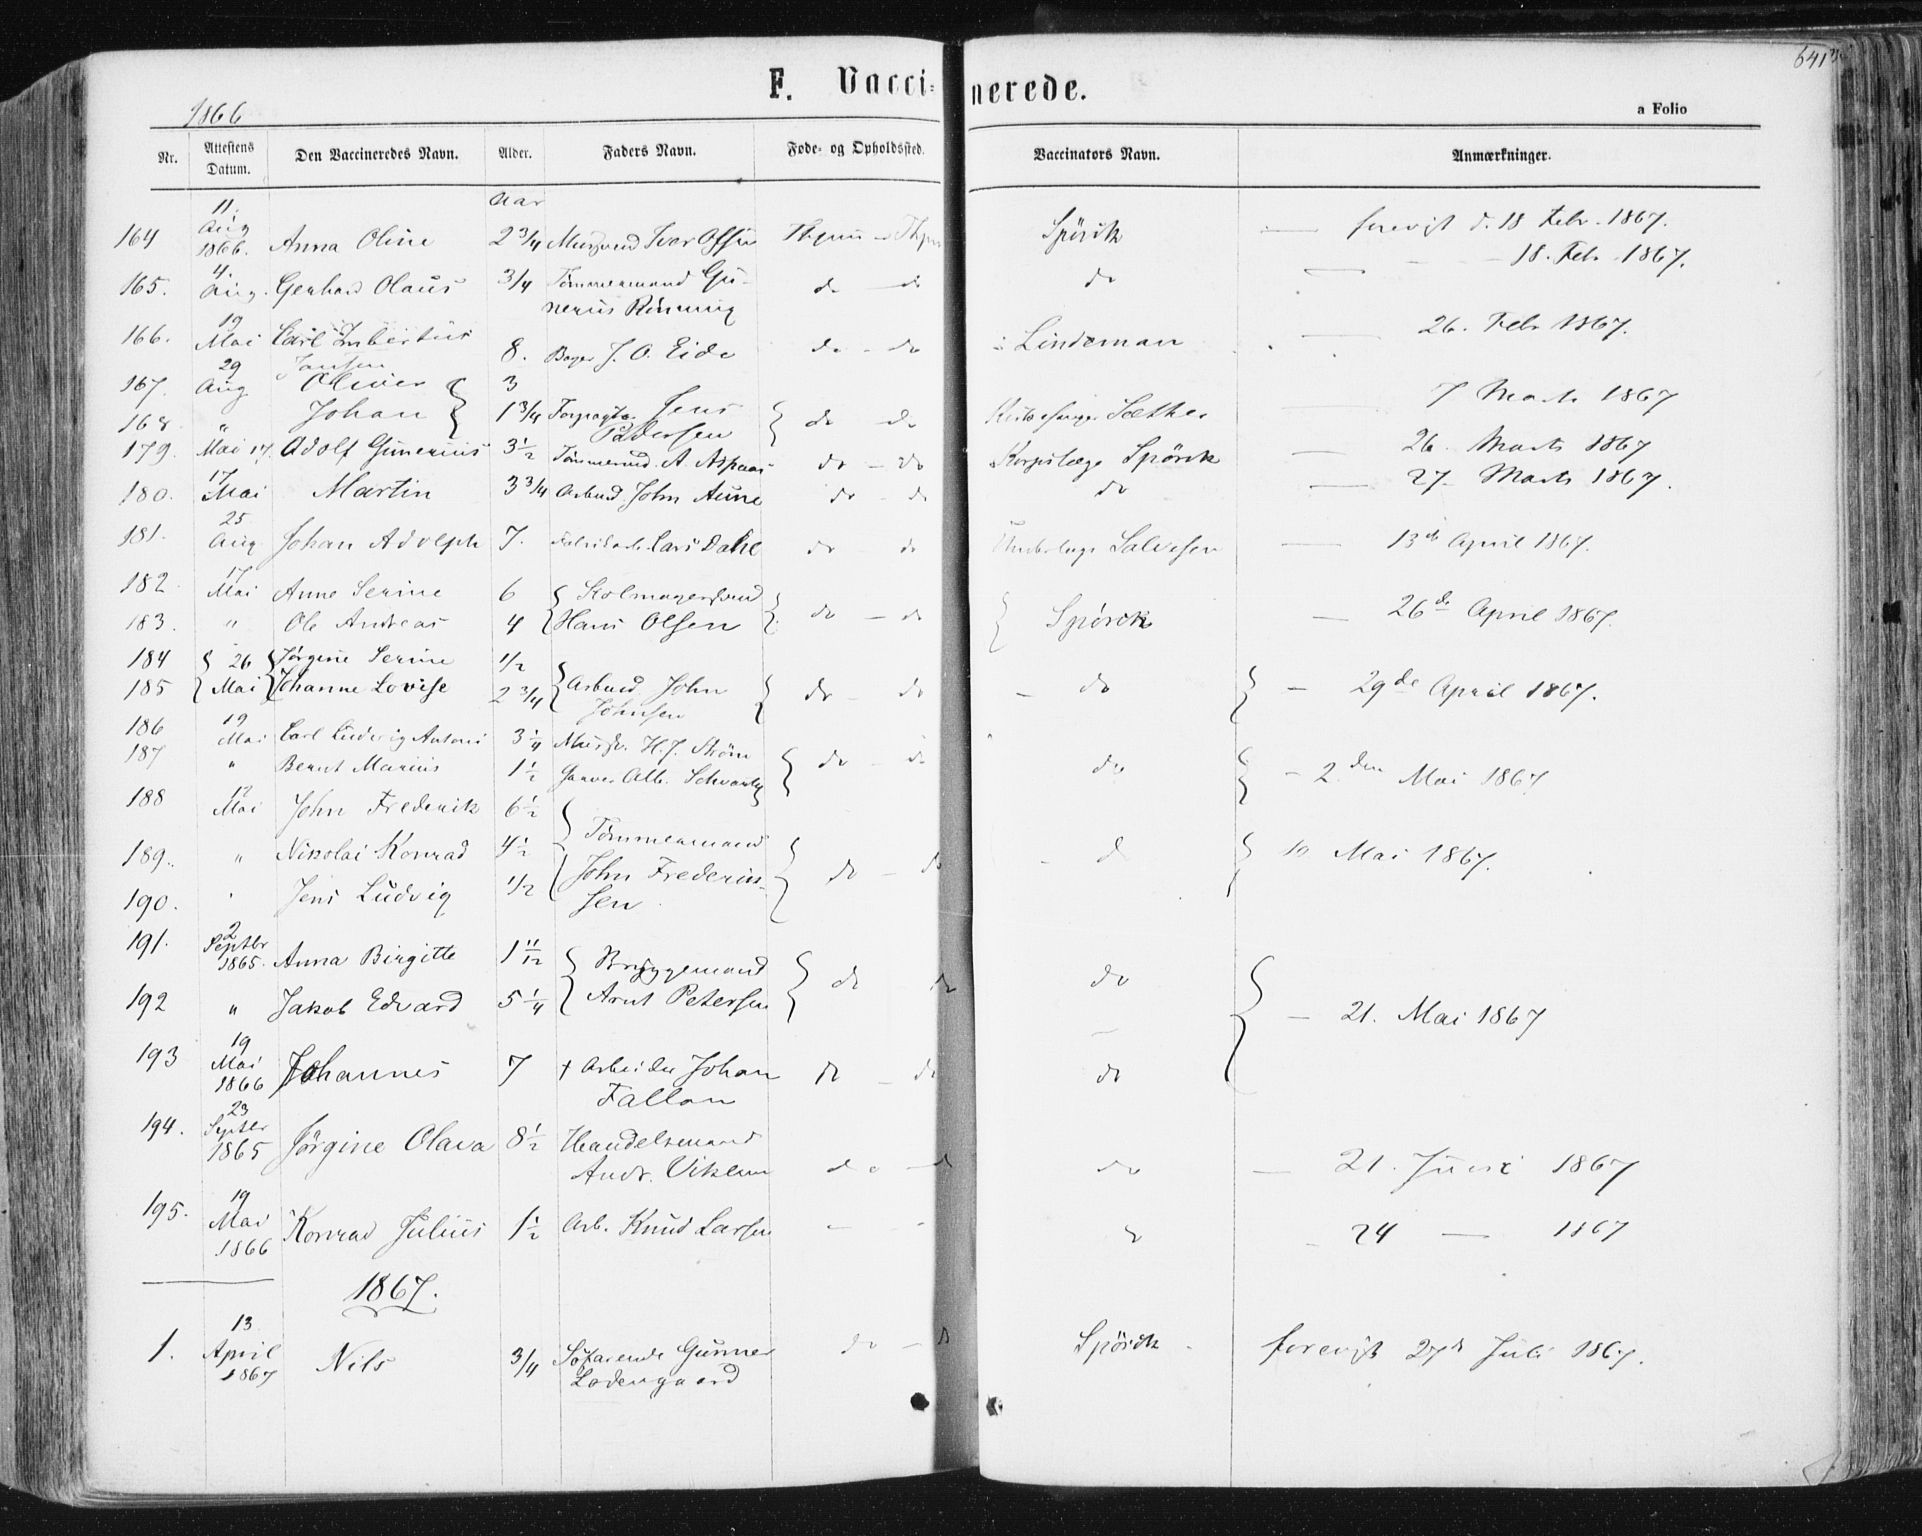 F. Vaccinerede.
1866
a Folio
Nr. Attestens Datum. Den Vaccineredes Navn. Alder. Faders Navn. Føde- og Opholdssted. Vaccinators Navn. Anmærkninger.
Aar
164 11. Aug 1866. Anna Oline 2 3/4 Iver Thjem - Spörck — forevist d. 18 Febr. 1867.
165. 4. Aug. Gerhard Olaus 3/4 Tömmermand Gu- do — do do — 18. Feb. 1867.
nerius Rönning
166. 19 Mai Carl Imbertus 8. Bager J. O. Eide do - do Lindeman — 26. Feb 1867.
Jansen
167. 29 Aug Oliver 3 — 7 Marts 1867
168. " Johan 1 3/4 Jens do do Sæther
Pedersen
179. Mai 17. Adolf Gunerius 3 1/2 Tömmermd. A. Aspaas do - do Korpslæge Spörck — 26. Marts 1867
180. 17 Mai Martin 3 3/4 Arbmd. John Aune do - do do — 27 Marts 1867.
181. 25 Aug. Johan Adolph 7. Lars Dahl do do Underlæge Salvesen — 13de April 1867.
182. 17 Mai Anne Serine 6
183. " Ole Andreas 4 Hans Olsen do — do Spörck — 26de April 1867.
184 26 Jörgine Serine 1/2
185 Mai Johanne Lovise 2 3/4 Arbmd. John do - do do — 29de April 1867.
Johnsen
186 19 Mai Carl Ludvig Antoni 3 1/4 H. J. Ström
187 " Bernt Marius 1 1/2 Garver Alb. Schvartz do - do do — 2den Mai 1867
188 17 Mai John Frederik 6 1/2
Tömmermand
189. " Nikolai Konrad 4 1/2 John Frederik- do - do d — 10 Mai 1867.
190. " Jens Ludvig 1/2 sen
191. 2 Septbr 1865. Anna Birgitte 1 11/12 Bryggemand do do do
192 " Jakob Edvard 5 1/4 Arnt Petersen — 21. Mai 1867
193 19 Mai 1866 Johannes 7 + Arbeider Johan do - do do
Fallan
194. 23 Septbr 1865 Jörgine Olava 8 1/2 Handelsmand
Andr. do - do do — 21. Juni 1867
195. 19 Mai 1866 Konrad Julius 1 1/2 Arb. Knud Larsen - - — 24 — 1867
1867.
1. 13 April 1867 Nils 3/4 Söfarende Gunner do - do Spörck forevist 27de Juli 1867.
Ladengaard